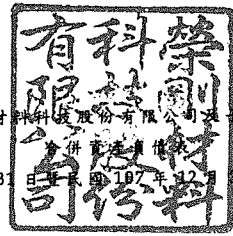 榮剛材料
科技股份
有限公司
材料科技股份有限公司及
合併資產負債表
31日暨民國107年12月